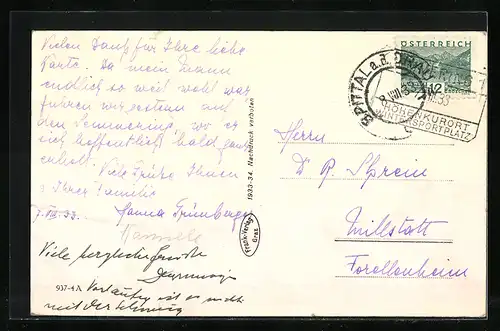 Vielen Dank für Ihre liebe
Karte. Da mein Mann
endlich so weit wohl war
fuhren wir gestern auf
den Semmering, wo er
sich hoffentlich bald ganz
erholt.
Viele Grüße Ihnen
u Ihrer Familie
7.VIII.33. Hanna Grünberger
Viele herzliche Grüsse
Vorläufig ist es nicht
mit der
937-4A
1933-34. Nachdruck verboten
Frank-Verlag
Graz
ÖSTERREICH
12
SPITTAL a.d. DRAU
8.VIII.33
HÖHENKURORT
WINTERSPORTPLATZ
Herrn
Dr R. Sprein
Millstatt
Forellenheim